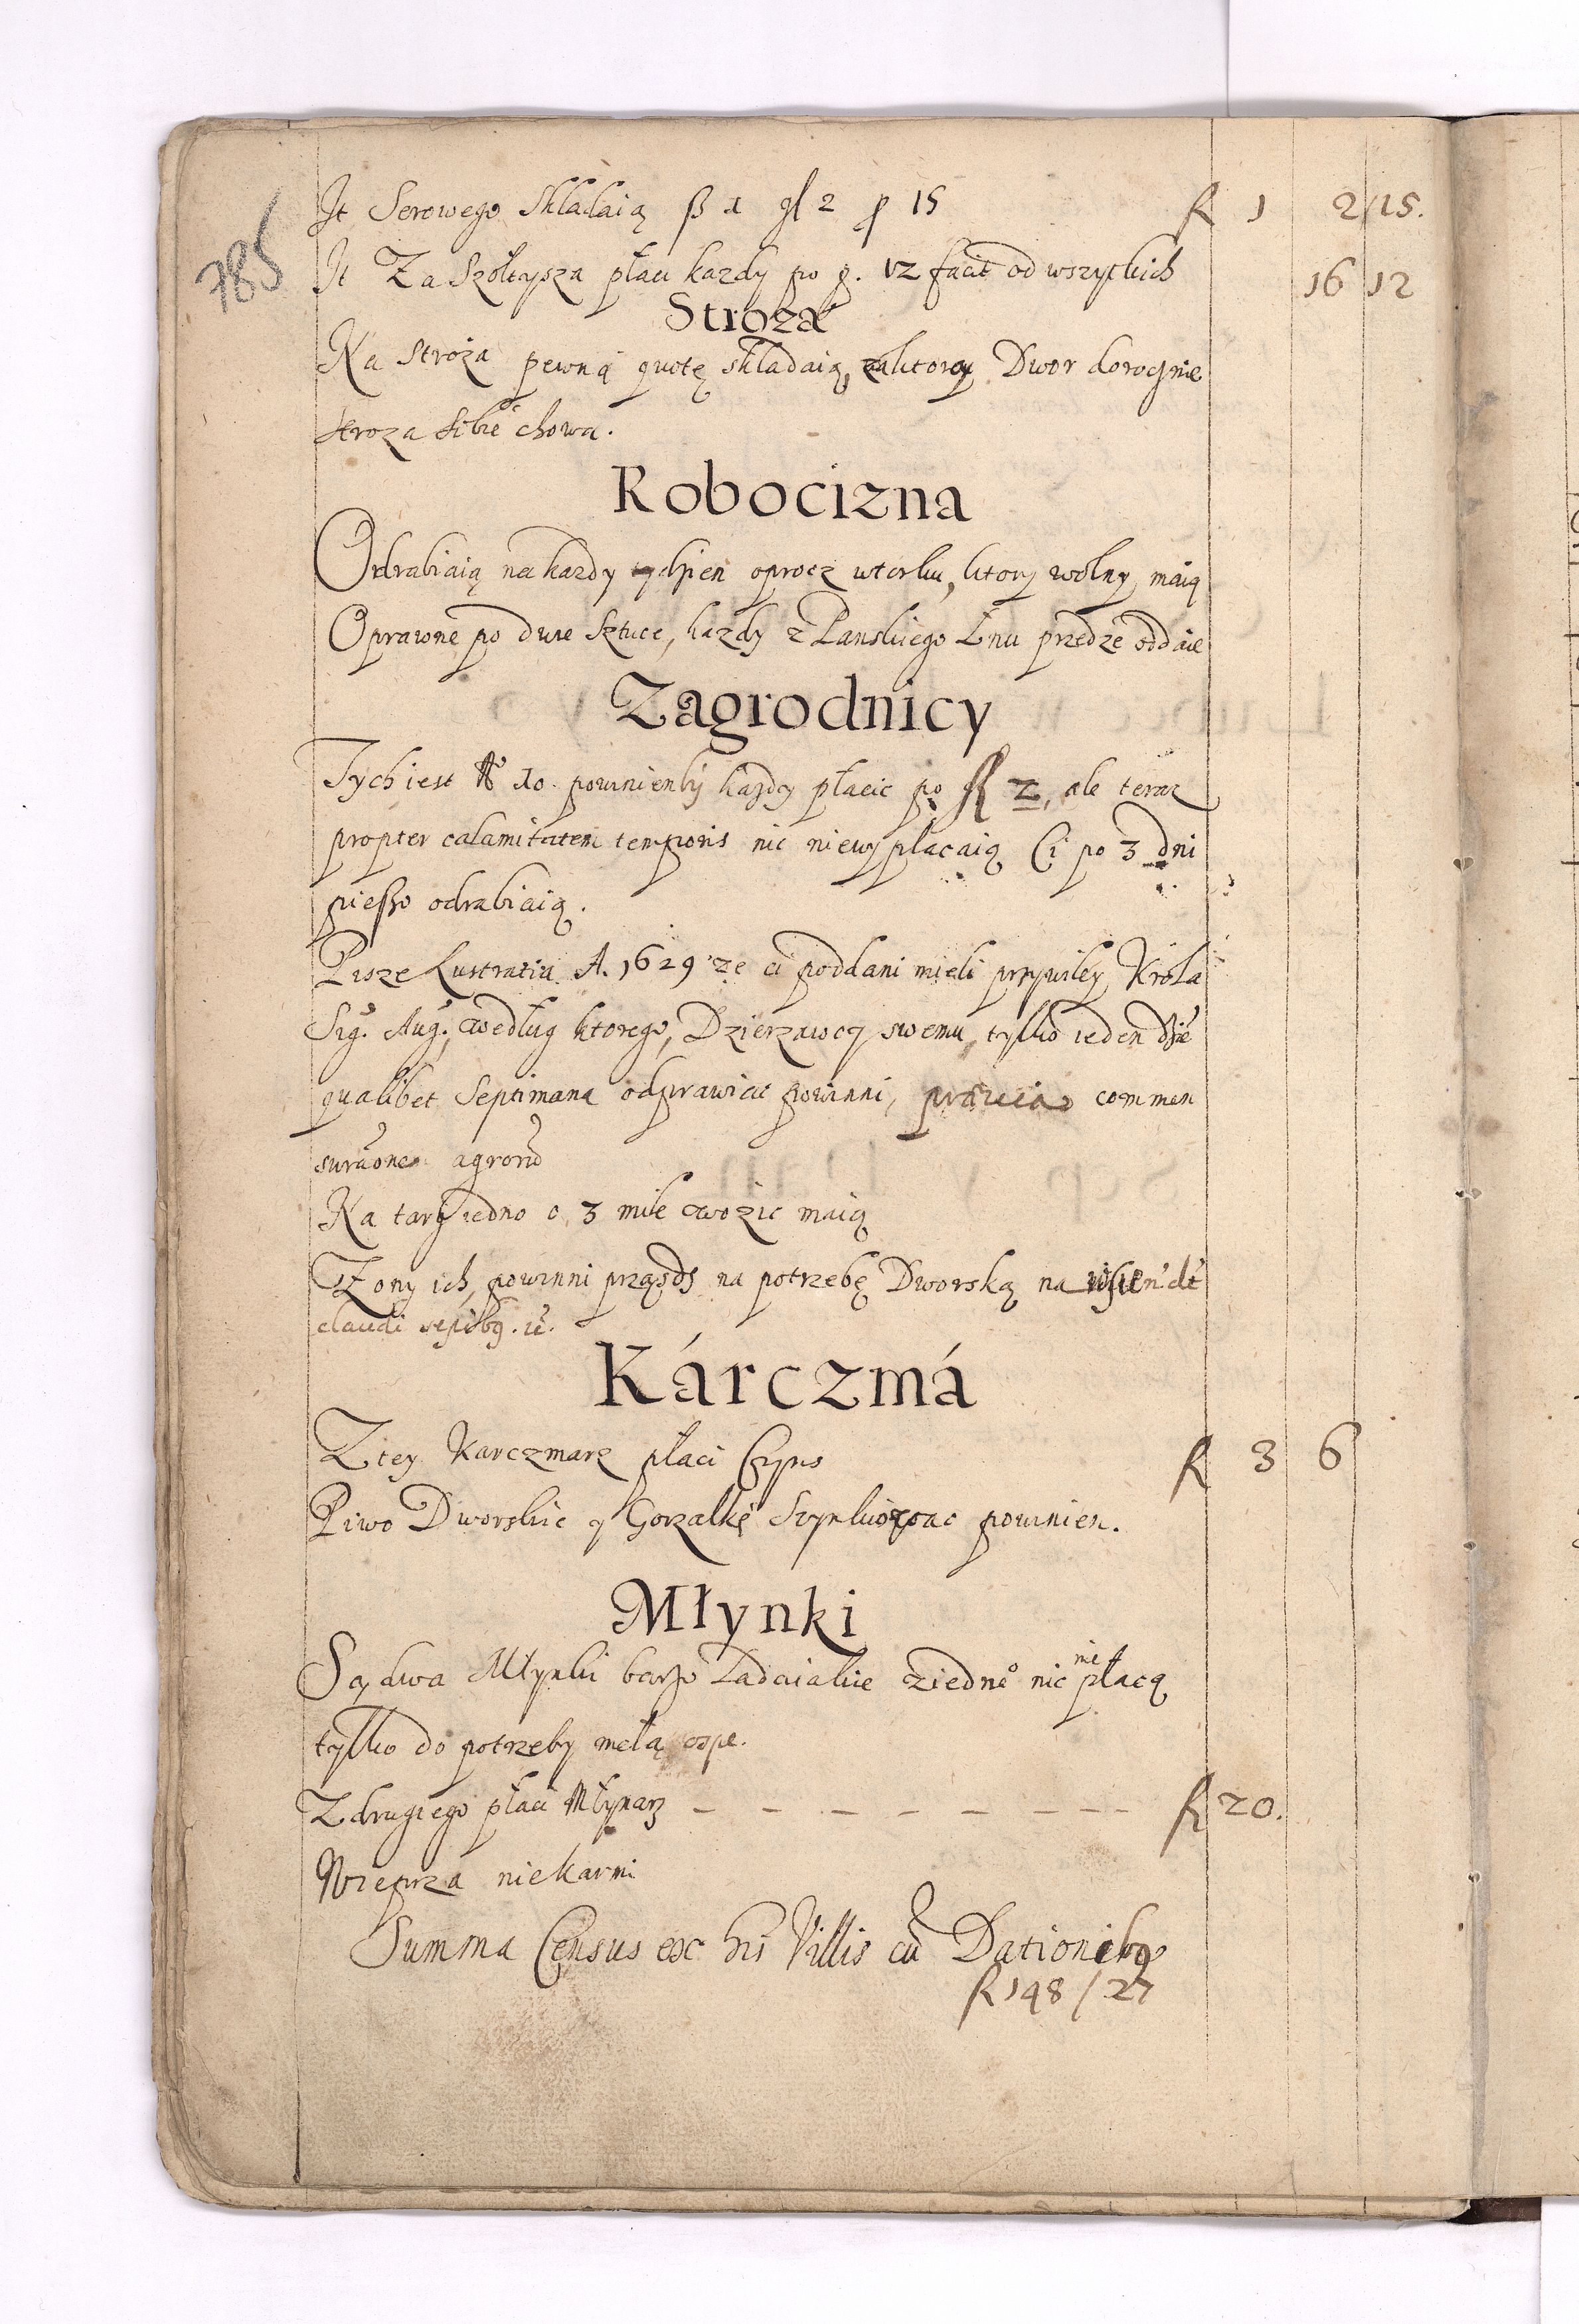 785
It Serowego Składaią ß 1 gł 2 ₰ 15 fl 1 2 15.
It Za Szołtysza płaci kazdy po g. 12 facit od wszytkich 16 12
Stroza
Na Stroża pewną quotę składaią, zaktorą Dwor dorocznie
stroza sibie chowa.
Robocizna
Odrabiaią na kazdy tydzien oprocz wtorku, ktory wolny maią
Oprawne po dwie Sztuce, kazdy z Panskiego Lnu przedze oddaie
Zagrodnicy
Tych iest No 10. powinienby kazdy płacic po fl 2, ale teraz
propter calamitatem temporis nic niewypłacaią Ci po 3 dni
pieszo odrabiaią.
Pisze Lustratia A. 1629 ze ci poddani mieli przywiley Krola
Sig. Aug. według ktorego, Dzierzawcy swemu, tylko ieden dzie
qualibet Septimana odprawiac powinni, commen
suraone agroru
Na targ iedno o 3 mile wozic maią
Zony ich, powinni prząsdz na potrzebę Dworską na
claudi sepibq.
Kárczmá
Z tey Karczmarz płaci Czyns fl 3 6
Piwo Dworskie y Gorzałkę Szynkowac powinien.
Młynki
Są dwa Młynki barzo Ladaiakie ziedno nic nie płacą
tylko do potrzeby melą ospe.
Z drugiego płaci Młynarz - - - - - - - - fl 20.
Wieprza niekarmi
Summa Census ex his Villis cu Dationibq
fl 148 / 27